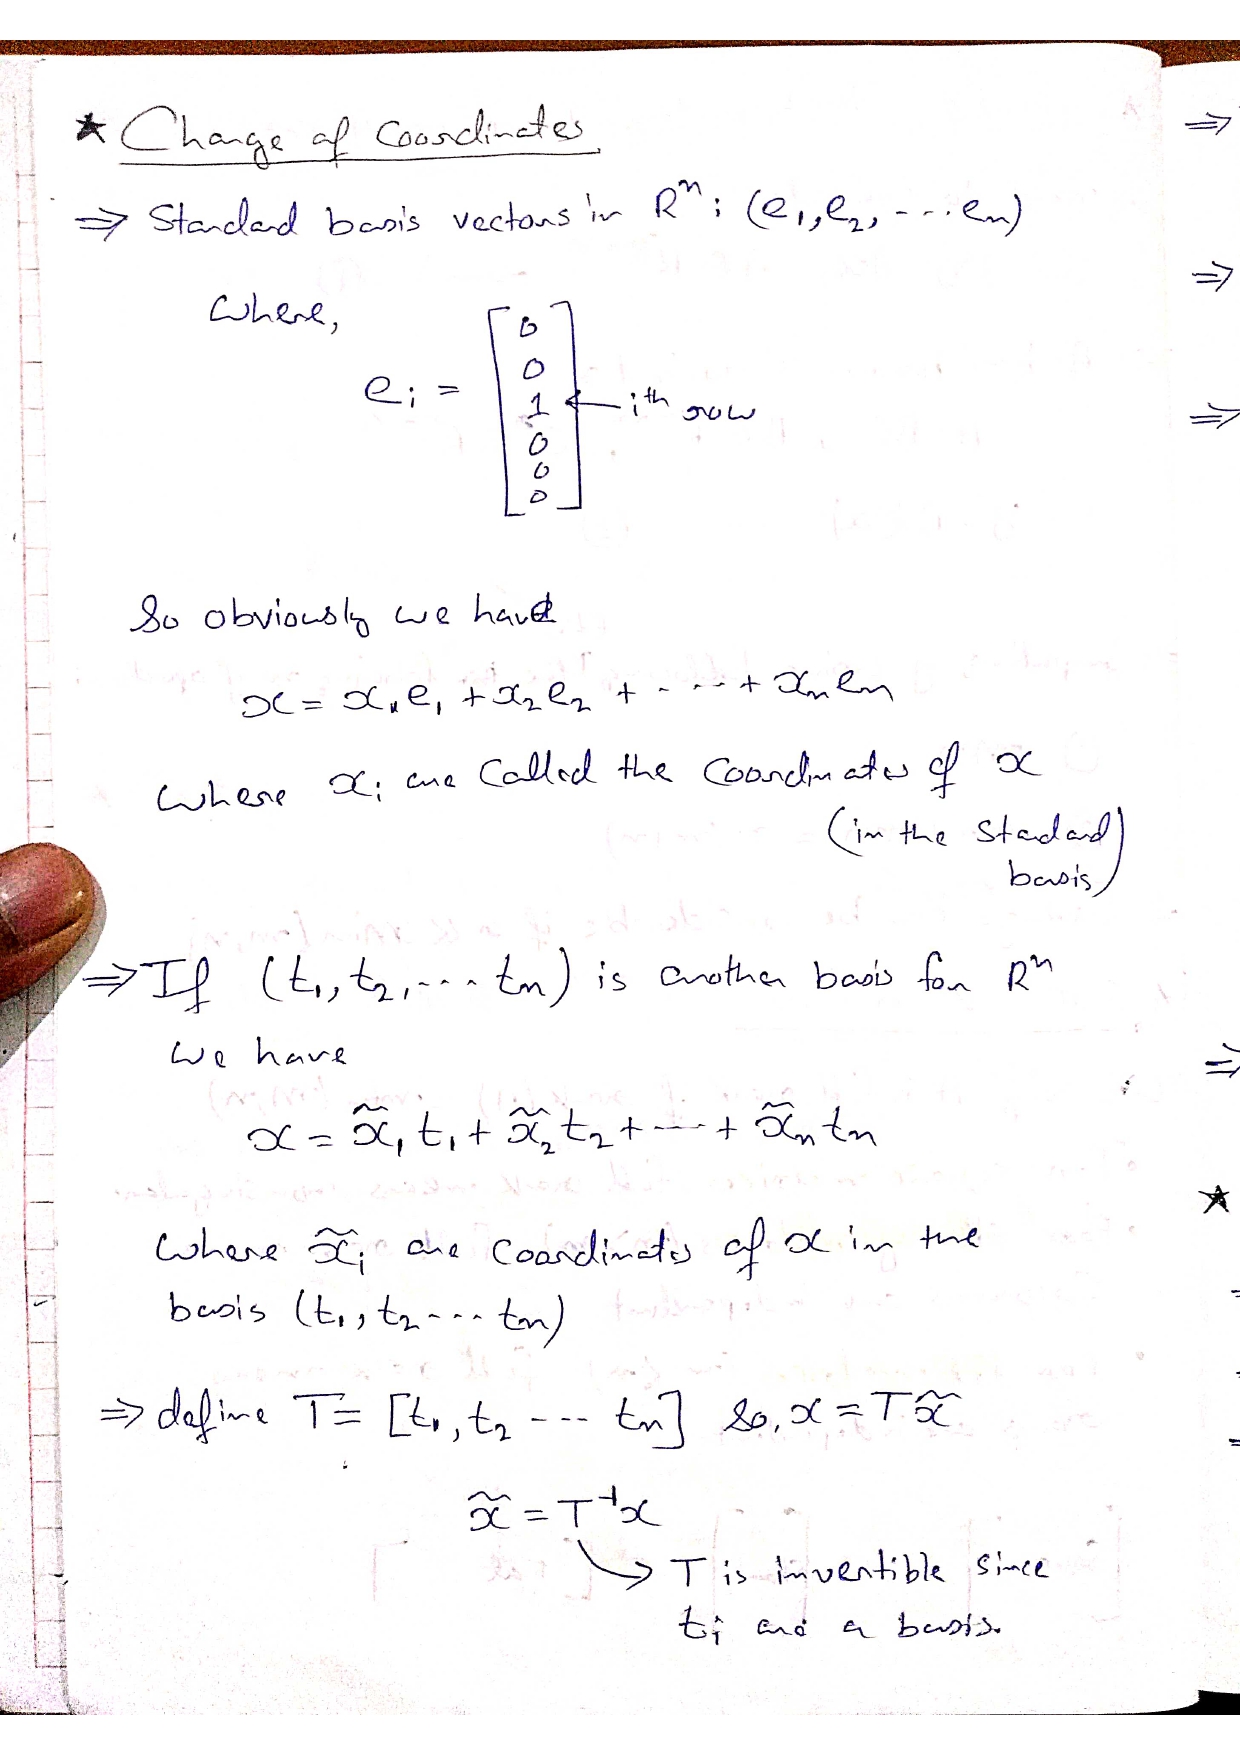 ★ Change of Coordinates
⇒ Standard basis vectors in Rⁿ: (e₁, e₂, --- eₙ)
Where,
eᵢ = [0 0 1 0 0 0] ← iᵗʰ row
So obviously we have
x = x₁e₁ + x₂e₂ + - -- + xₙeₙ
Where xᵢ are Called the Coordinates of x
(in the Standard
basis)
⇒ If (t₁, t₂, --- tₙ) is another basis for Rⁿ
we have
x = x̃₁t₁ + x̃₂t₂ + --- + x̃ₙtₙ
Where x̃ᵢ are Coordinates of x in the
basis (t₁, t₂ --- tₙ)
⇒ define T = [t₁, t₂ --- tₙ] So, x = Tx̃
x̃ = T⁻¹x
→ T is invertible since
tᵢ are a basis.